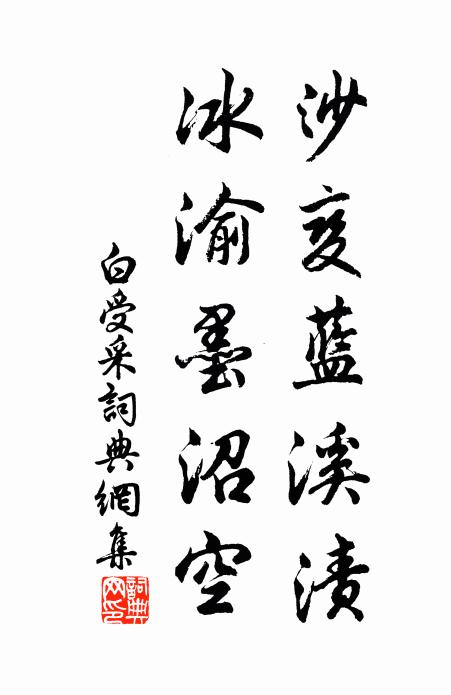 沙變藍溪漬
冰渝墨沼空
白受采詞典網集
詞典网印